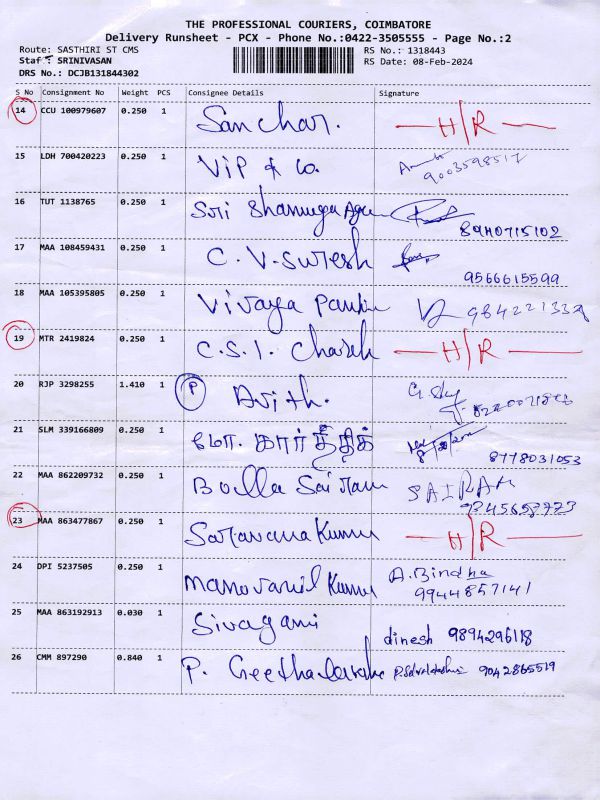 THE PROFESSIONAL COURIERS, COIMBATORE
Delivery Runsheet - PCX - Phone No.:0422-3505555 - Page No.:2
Route: SASTHIRI ST CMS RS No.: 1318443
Staf : SRINIVASAN RS Date: 08-Feb-2024
DRS No.: DCJB131844302
S No Consignment No Weight PCS Consignee Details Signature
14 CCU 100979607 0.250 1 Sanchar. H/R
15 LDH 700420223 0.250 1 VIP & Co. 9003598517
16 TUT 1138765 0.250 1 Sri Shanmuga 8940715102
17 MAA 108459431 0.250 1 C.V.Suresh 9566615599
18 MAA 105395805 0.250 1 Vijaya
19 MTR 2419824 0.250 1 C.S.I. H/R
20 RJP 3298255 1.410 1 P
21 SLM 339166809 0.250 1 மோ. கார்த்திக் 8778031053
22 MAA 862209732 0.250 1 Bolla Sairam SAIRAM
23 MAA 863477867 0.250 1 Saravana Kumar H/R
24 DPI 5237505 0.250 1 Kumar A.Bindha 9944857141
25 MAA 863192913 0.030 1 Sivagami dinesh 9894296118
26 CMM 897290 0.840 1 P. 9042865519